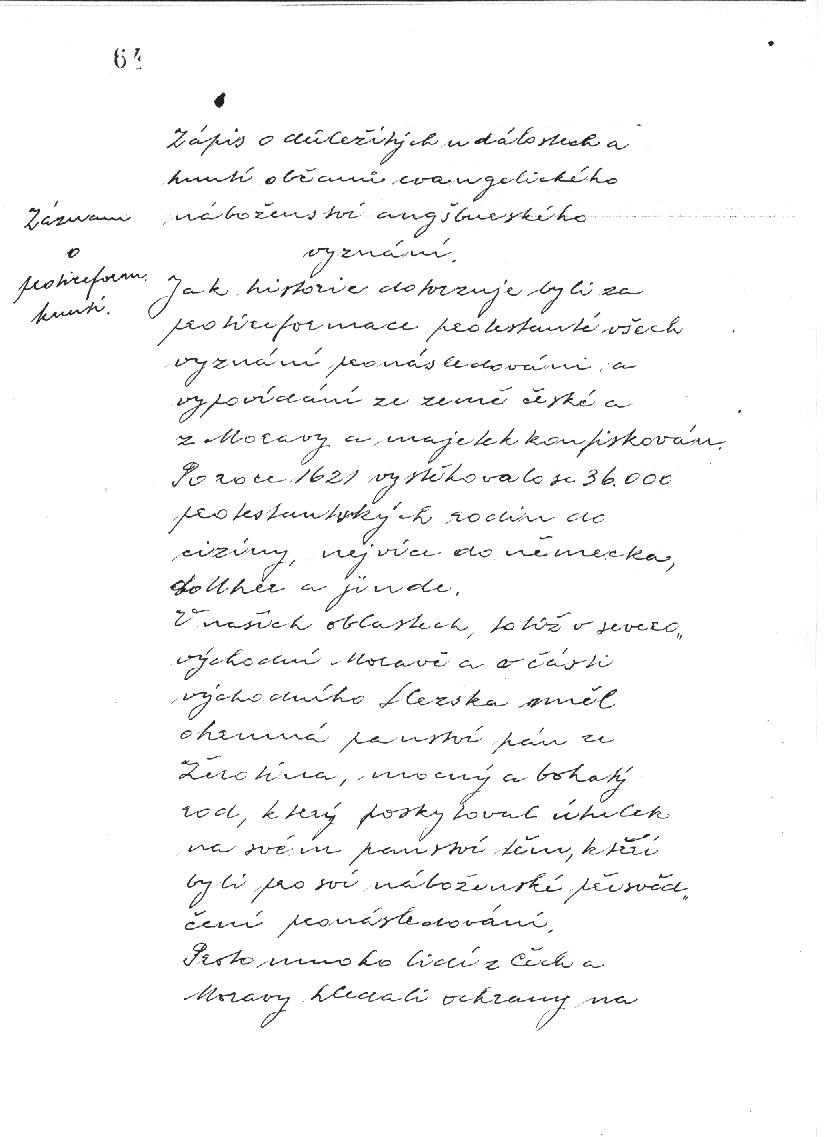 64
Zápis o důležitých událostech a
hnutí občanů evangelického
náboženství augšburského
vyznání.
Záznam
o
protireform.
hnutí.
Jak historie dotvrzuje byli za
protireformace protestanté všech
vyznání pronásledováni a
vypovídáni ze země české a
z Moravy a majetek konfiskován.
Po roce 1621 vystěhovalo se 36.000
protestantských rodin do
ciziny, nejvíce do německa,
do Uher a jinde.
V našich oblastech, totiž v severo„
východní Moravě a v části
východního Slezska měl
ohromná panství pán ze
Žerotína, mocný a bohatý
rod, který poskytoval útulek
na svém panství těm, kteří
byli pro své náboženské přesvěd„
čení pronásledováni.
Proto mnoho lidí z Čech a
Moravy hledali ochrany na